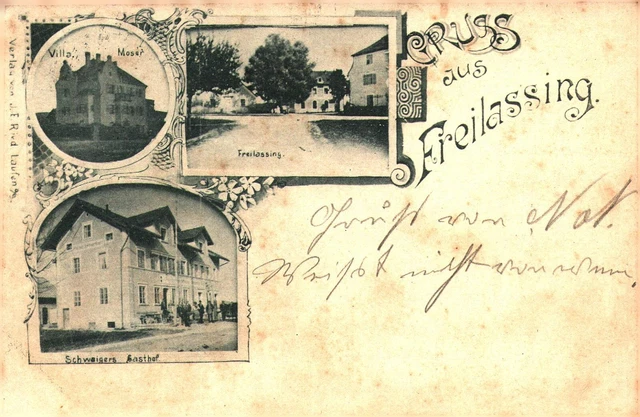 Villa Moser
GRUSS
aus
Freilassing.
Freilassing.
Gruß von
Weißt nicht von wem.
Schweigers Gasthof
Verlag von J. F. Ried Laufen